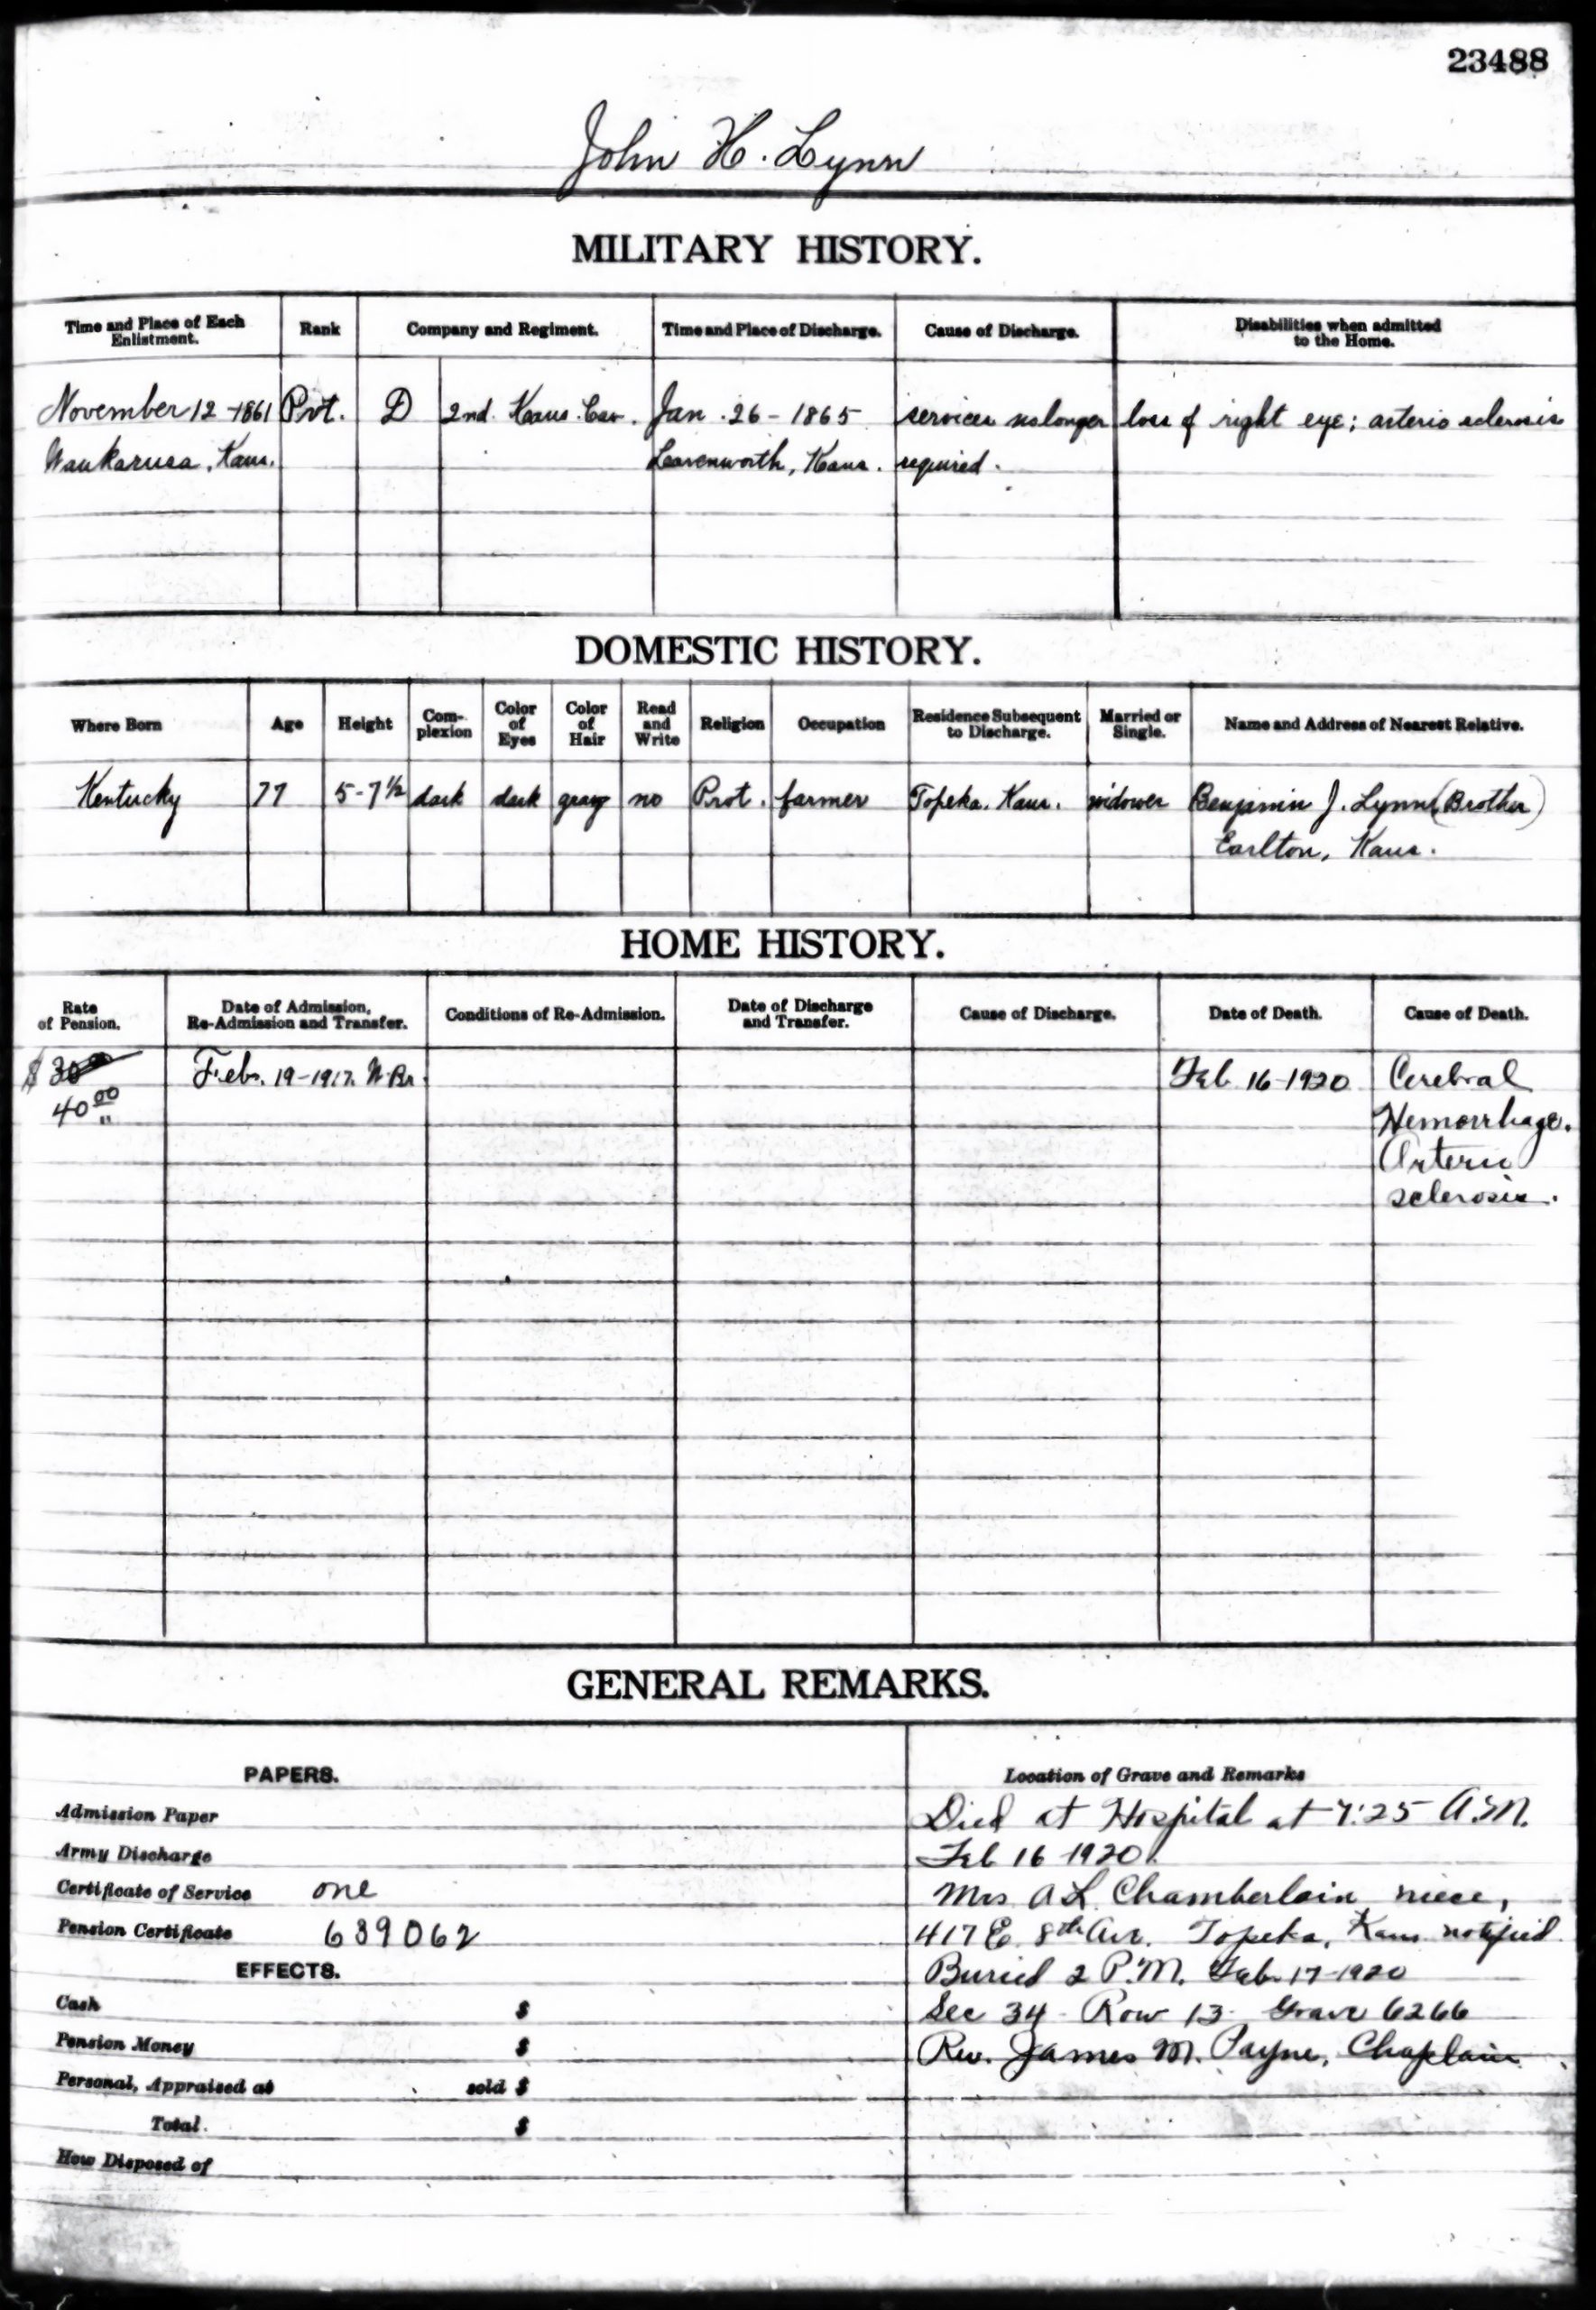 23488
John H. Lynn
MILITARY HISTORY.
Time and Place of Each Enlistment. Rank Company and Regiment. Time and Place of Discharge. Cause of Discharge. Disabilities when admitted to the Home.
November 12-1861 Pvt. D 2nd. Kans. Cav. Jan. 26-1865 services no longer loss of right eye; arterio sclerosis
Waukarusa, Kans. Leavenworth, Kans. required.
DOMESTIC HISTORY.
Where Born Age Height Com-plexion Color of Eyes Color of Hair Read and Write Religion Occupation Residence Subsequent to Discharge. Married or Single. Name and Address of Nearest Relative.
Kentucky 77 5-7½ dark dark gray no Prot. farmer Topeka, Kans. widower Benjamin J. Lynn (Brother)
Earlton, Kans.
HOME HISTORY.
Rate of Pension. Date of Admission, Re-Admission and Transfer. Conditions of Re-Admission. Date of Discharge and Transfer. Cause of Discharge. Date of Death. Cause of Death.
$ 30 00 Feb. 19-1917. W. Br. Feb 16-1920 Cerebral
40 00 Hemorrhage.
Arterio
sclerosis.
GENERAL REMARKS.
PAPERS. Location of Grave and Remarks
Admission Paper Died at Hospital at 7:25 A.M.
Army Discharge Feb 16-1920.
Certificate of Service one Mrs A L Chamberlain niece,
Pension Certificate 639062 417 E. 8th Ave. Topeka, Kans notified
EFFECTS. Buried 2 P.M. Feb-17-1920
Cash $ Sec 34 - Row 13 - Grave 6266
Pension Money $ Rev. James M. Payne, Chaplain
Personal, Appraised at sold $
Total. $
How Disposed of